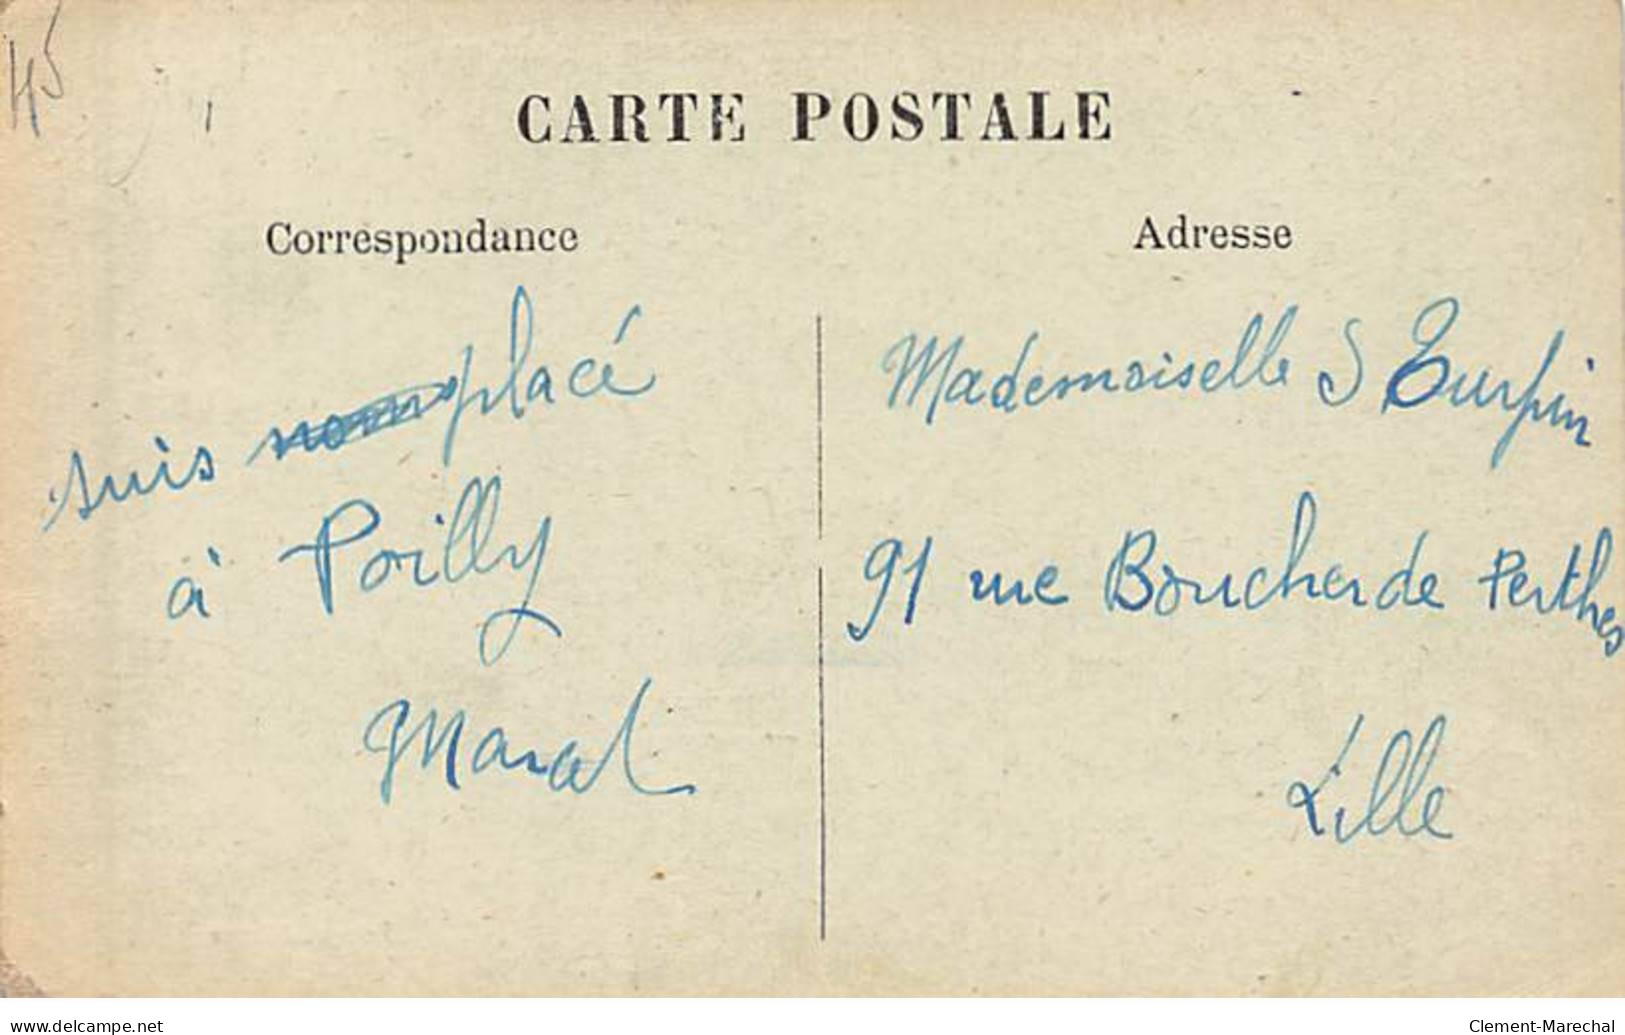 45
CARTE POSTALE
Correspondance
suis placé
à Poilly
Adresse
Mademoiselle S Turpin
91 rue Boucher de Perthes
Lille
www.delcampe.net
Clement-Marechal